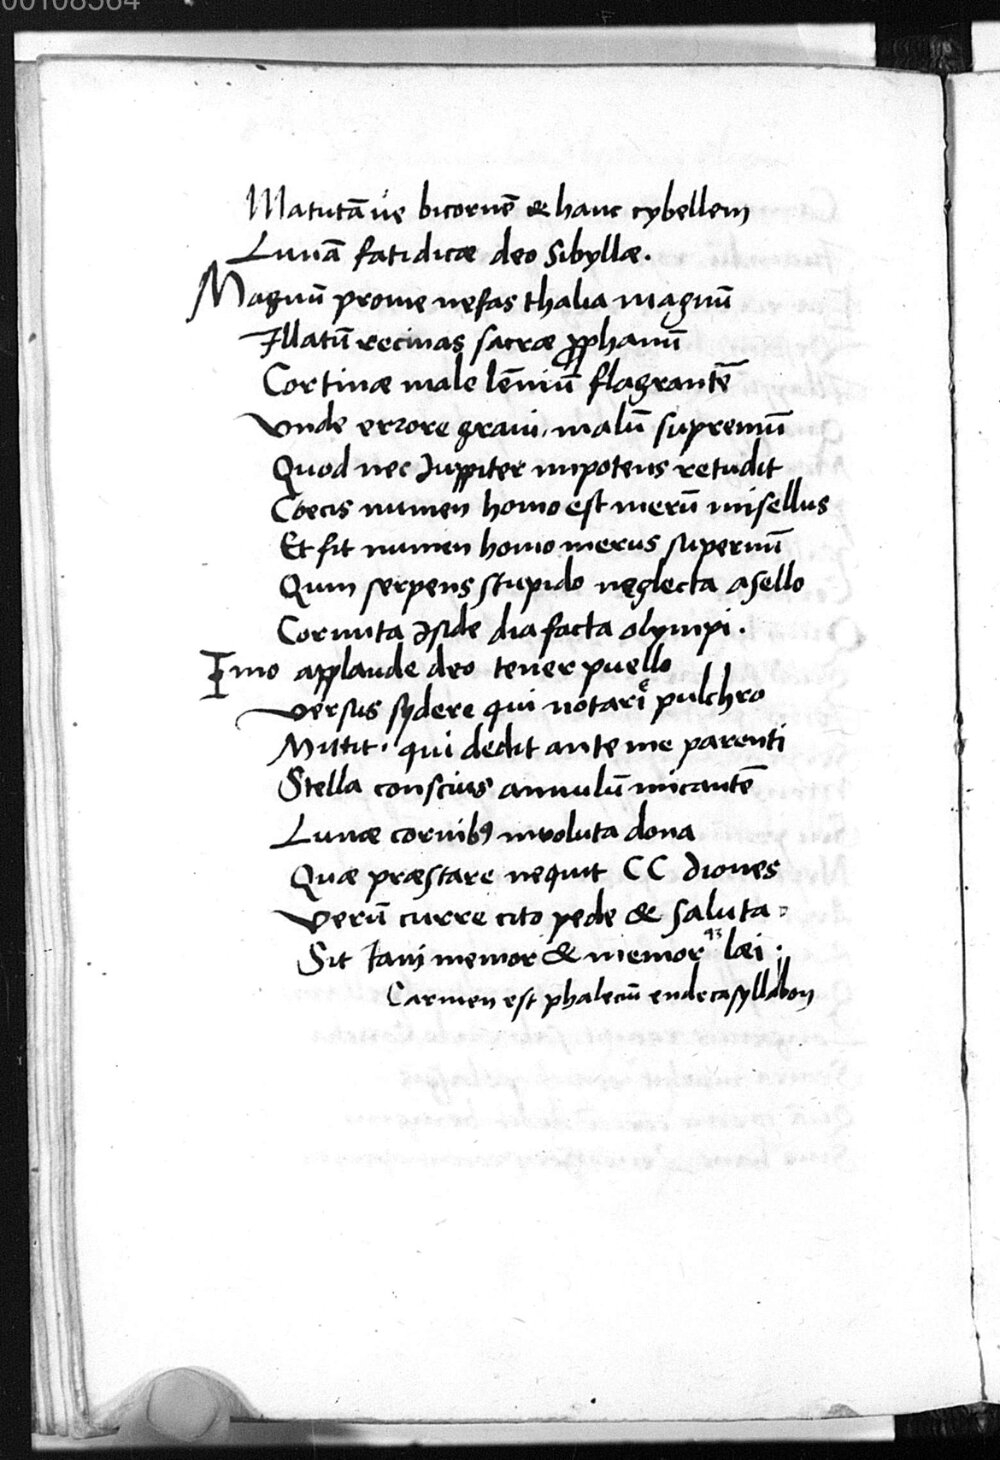 00108564
Matutāue bicornē & hanc cybellem
Lunā fatidicæ deo Sibyllæ.
Magnū prome nefas thalia magnū
Illatū recinas sacræ ꝓphanū
Cortinæ male lēniū flagrantē
Vnde errore graui, malū supremū
Quod nec Iuppiter impotens retudit
Coecis numen homo est merū misellus
Et fit numen homo merus supernū
Qum serpens stupido nęglecta asello
Cornuta Iside dia facta olympi.
Imo applaude deo tener puello
Versus sydere qui notari pulchro
Mittit. qui dedit ante me parenti
Stella conscius annulū micantē
Lunæ cornibꝰ inuoluta dona
Quæ præstare nequit CC diones
Verū curre cito pede & saluta:
Sit tam memor & memor læi:
Carmen est phaleciū endecasyllabon